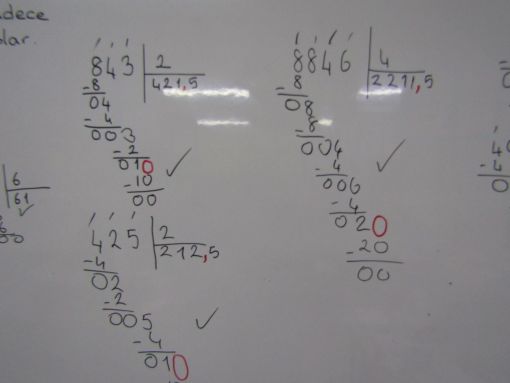 adece
lar.
843 2
-8 421,5
04
-4
003
-2
010
-10
00
425 2
-4 212,5
02
-2
005
-4
010
8846 4
-8 2211,5
08
-8
004
-4
006
-4
020
-20
00
6
61
00